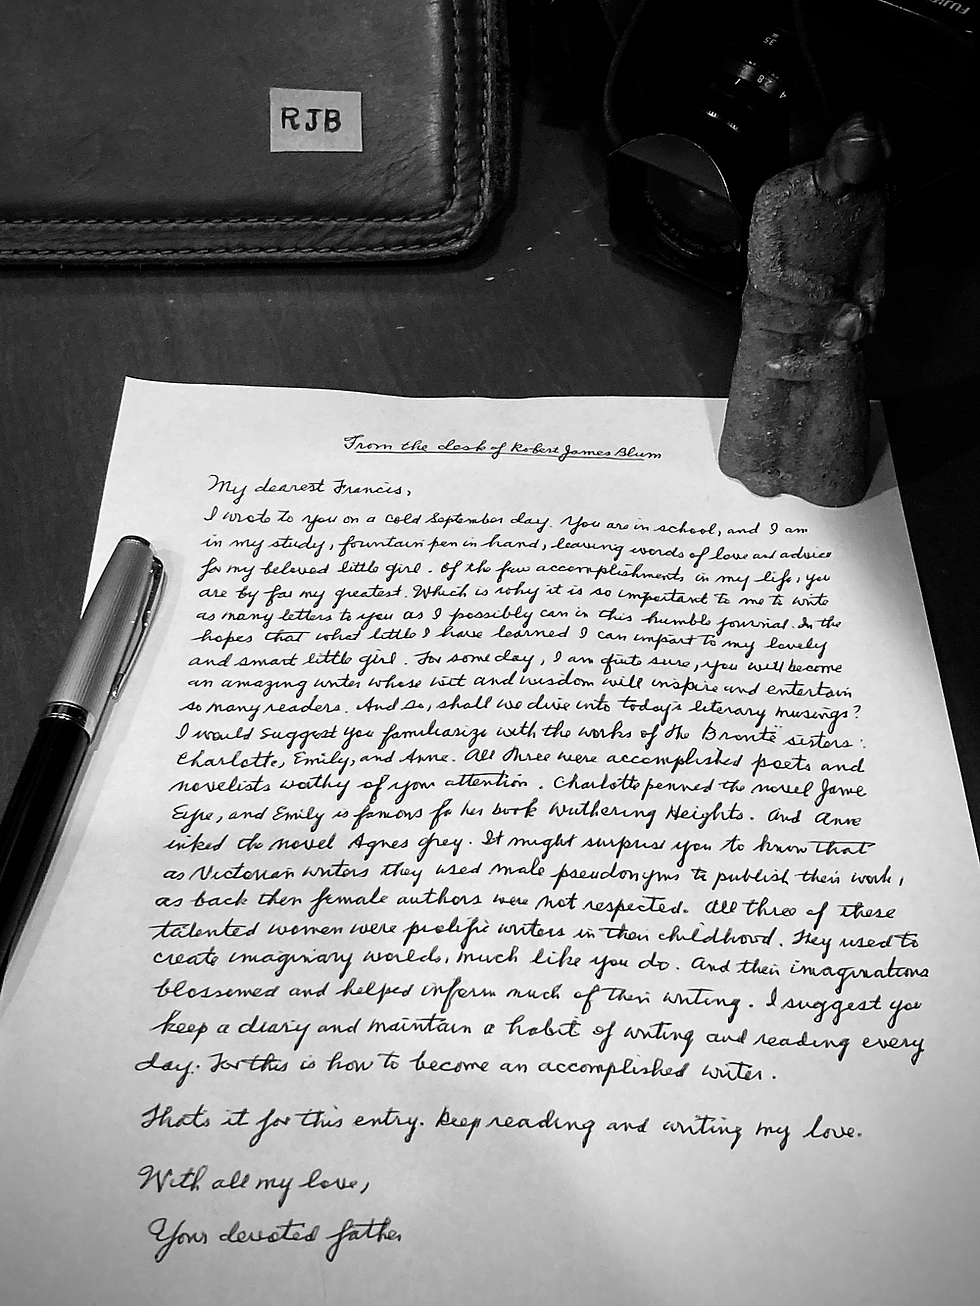 FUJI
35
4 2.8
RJB
From the desk of Robert James Blum
My dearest Francis,
I wrote to you on a cold September day. You are in school, and I am
in my study, fountain pen in hand, leaving words of love and advice
for my beloved little girl. Of the few accomplishments in my life, you
are by far my greatest. Which is why it is so important to me to write
as many letters to you as I possibly can in this humble journal. In the
hopes that what little I have learned I can impart to my lovely
and smart little girl. For some day, I am quite sure, you will become
an amazing writer whose wit and wisdom will inspire and entertain
so many readers. And so, shall we dive into today's literary musings?
I would suggest you familiarize with the works of the Brontë sisters:
Charlotte, Emily, and Anne. All three were accomplished poets and
novelists worthy of your attention. Charlotte penned the novel Jane
Eyre, and Emily is famous for her book Wuthering Heights. And Anne
inked the novel Agnes Grey. It might surprise you to know that
as Victorian writers they used male pseudonyms to publish their work,
as back then female authors were not respected. All three of these
talented women were prolific writers in their childhood. They used to
create imaginary worlds, much like you do. And their imaginations
blossomed and helped inform much of their writing. I suggest you
keep a diary and maintain a habit of writing and reading every
day. For this is how to become an accomplished writer.
Thats it for this entry. Keep reading and writing my love.
With all my love,
Your devoted father